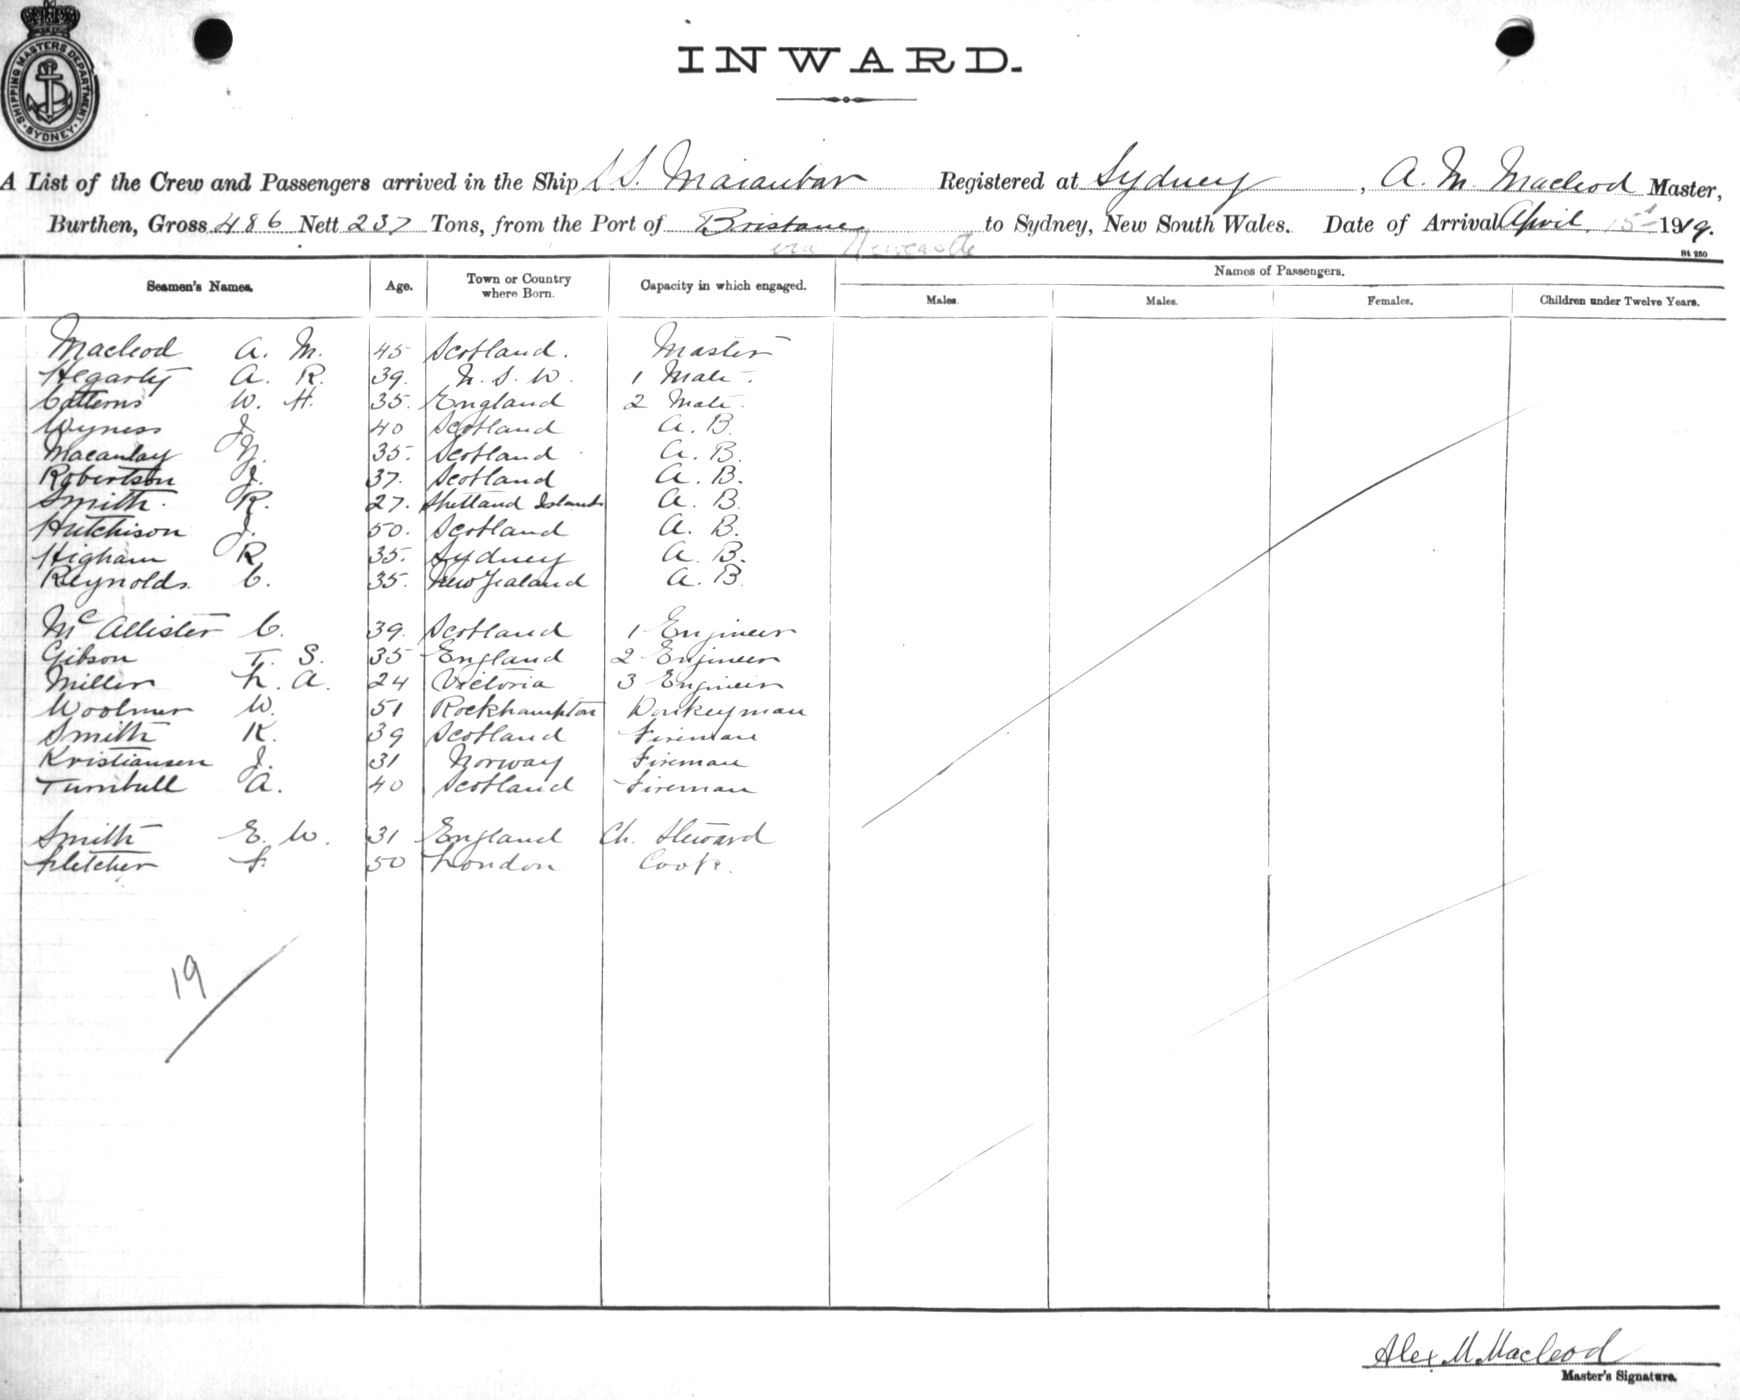 SHIPPING MASTERS DEPARTMENT SYDNEY
INWARD.
A List of the Crew and Passengers arrived in the Ship S S. Maianbar Registered at Sydney, A. M. Macleod Master,
Burthen, Gross 486 Nett 237 Tons, from the Port of Brisbane to Sydney, New South Wales. Date of Arrival April 15th 1919.
via Newcastle
St 250
Seamen's Names. Age. Town or Country where Born. Capacity in which engaged. Names of Passengers.
Males. Males. Females. Children under Twelve Years.
Macleod A. M. 45 Scotland. Master
Hegarty A. R. 39. N. S. W. 1 Mate.
Catterns W. H. 35. England 2 Mate.
Wyness J. 40 Scotland A. B.
Macaulay N. 35. Scotland A. B.
Robertson J. 37. Scotland A. B.
Smith. R. 27. Shetland Islands A. B.
Hutchison J. 50. Scotland A. B.
Higham R 35. Sydney A. B.
Reynolds. C. 35. New Zealand A. B.
McAllister C. 39. Scotland 1 Engineer
Gibson T. S. 35 England 2 Engineer
Miller L. A. 24 Victoria 3 Engineer
Woolmer W. 51 Rockhampton Donkeyman
Smith K. 39 Scotland Fireman
Kristiansen J. 31 Norway Fireman
Turnbull A. 40 Scotland Fireman
Smith E. W. 31 England Ch. Steward
Fletcher F. 50 London Cook.
19
Alex. M. Macleod
Master's Signature.